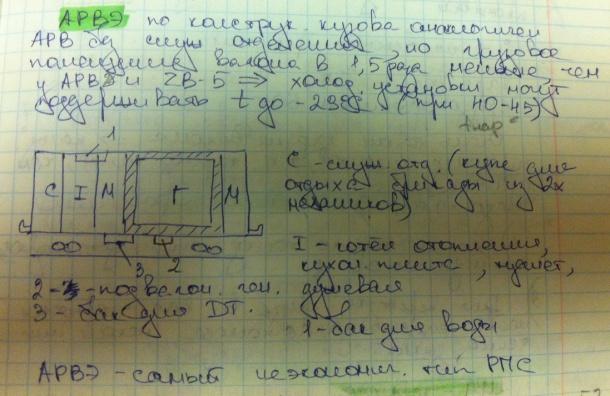 АРВЭ по конструк. кузова аналогичен
АРВ без служ. отделения, но грузовое
помещение вагона в 1,5 раза меньше чем
у АРВЭ и ZB-5 ⇒ холод. установки могут
поддерживать t до -23°C (при 40-45)
tнар°
1
С I М Г М
3 2
С - служ. отд. (купе для
отдыха бригады из 2х
механиков)
I - котёл отопления,
кухон. плита, туалет,
душевая
2 - подвагон. ген.
3 - бак для ДТ.
1 - бак для воды
АРВЭ - самый неэкономич. тип РПС